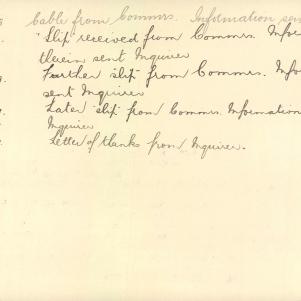 Cable from Commrs. Information sen
"Slip" received from Commrs. Infor
therein sent Inquirer
Further slip from Commrs. Info
sent Inquirer
Later slip from Commrs. Information
Inquirer
Letter of thanks from Inquirer.